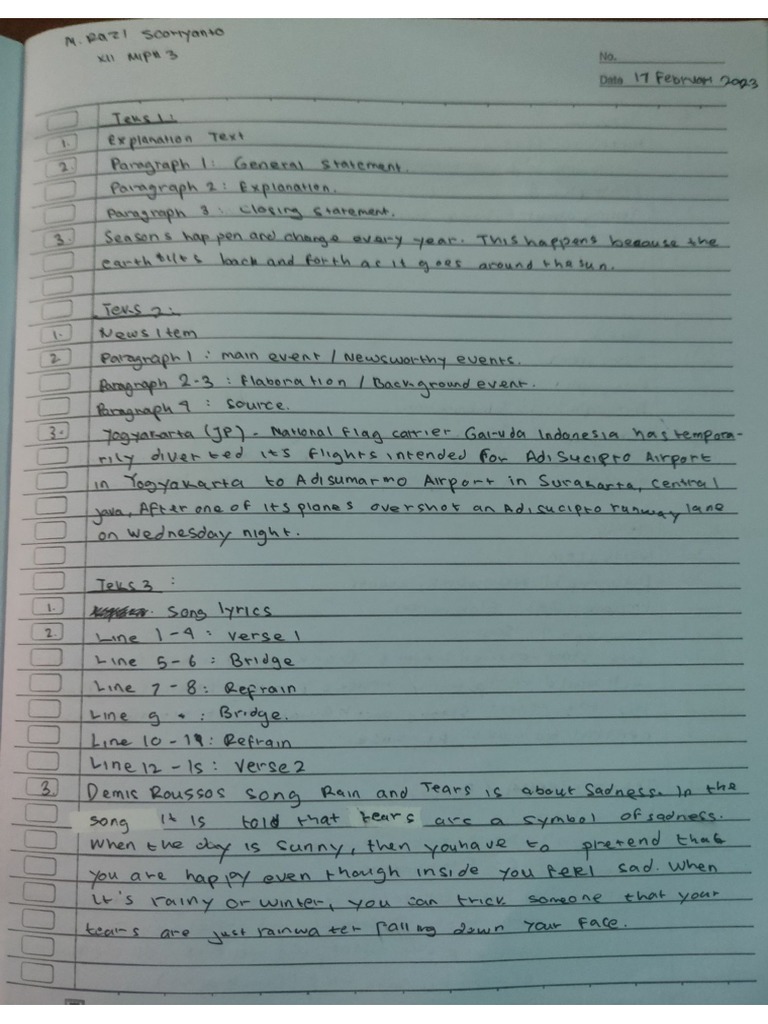 M. Razi Sooryanto
XII MIPA 3
No.
Date 17 Februari 2023
Teks 1:
1. Explanation Text
2. Paragraph 1: General statement.
Paragraph 2: Explanation.
Paragraph 3: Closing statement.
3. Seasons happen and change every year. This happens because the
earth tilts back and forth as it goes around the sun.
Teks 2:
1. News Item
2. Paragraph 1: main event / Newsworthy events.
Paragraph 2-3: Elaboration / Background event.
Paragraph 4: source.
3. Yogyakarta (JP) - National flag carrier Garuda Indonesia has tempora-
rily diverted its flights intended for Adisucipro Airport
in Yogyakarta to Adisumarmo Airport in Surakarta, central
java, After one of its planes overshot an Adisucipto runway lane
on Wednesday night.
Teks 3:
1. Song lyrics
2. Line 1-4: Verse 1
Line 5-6: Bridge
Line 7-8: Refrain
Line 9: Bridge.
Line 10-11: Refrain
Line 12-15: Verse 2
3. Demis Roussos song Rain and Tears is about Sadness. In the
song It Is told that tears are a symbol of sadness.
When the day is sunny, then you have to pretend that
you are happy even though inside you feel sad. When
it's rainy or winter, you can trick someone that your
tears are just rainwater falling down your face.